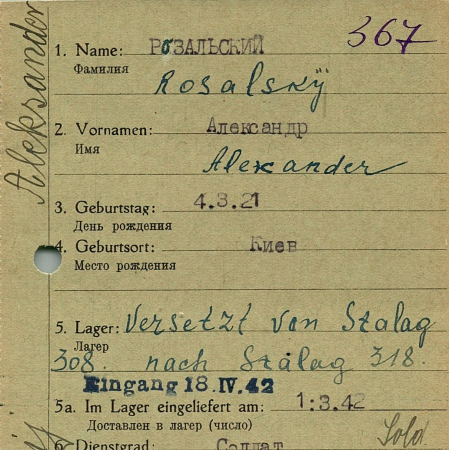 Aleksander
367
1. Name: РОЗАЛЬСКИЙ
Фамилия
Rosalskÿ
2. Vornamen: Александр
Имя
Alexander
3. Geburtstag: 4.3.21
День рождения
4. Geburtsort: Киев
Место рождения
5. Lager: Versetzt von Stalag
Лагерь
308. nach Stalag 318.
Eingang 18.IV.42
5a. Im Lager eingeliefert am: 1:3.42
Доставлен в лагерь (число)
6. Dienstgrad: Солдат
Sold